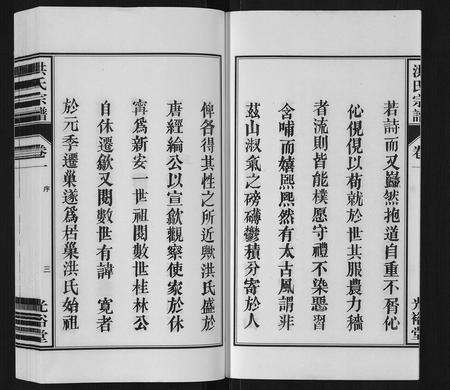 洪氏宗譜
卷
光裕堂
若詩而又巋然抱道自重不屑仳
仳俔俔以苟就於世其服農力穡
者流則皆能樸愿守禮不染惡習
含哺而嬉熙熙然有太古風謂非
茲山淑氣之磅礴鬱積分寄於人
俾各得其性之所近歟洪氏盛於
唐經綸公以宣歙觀察使家於休
甯為新安一世祖閱數世桂林公
自休遷歙又閱數世有諱 寬者
於元季遷巢遂為居巢洪氏始祖
洪氏宗譜
卷
序
三
光裕堂